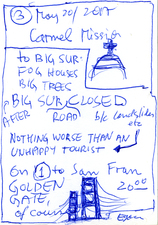 3 May 20/2017
Carmel Mission
to BIG SUR.
FOG HOUSES
BIG TREES
BIG SUR CLOSED
AFTER ROAD b/c Landslides
etc
NOTHING WORSE THAN AN
UNHAPPY TOURIST
On 1 to San Fran
GOLDEN 20⁰⁰
GATE,
of course